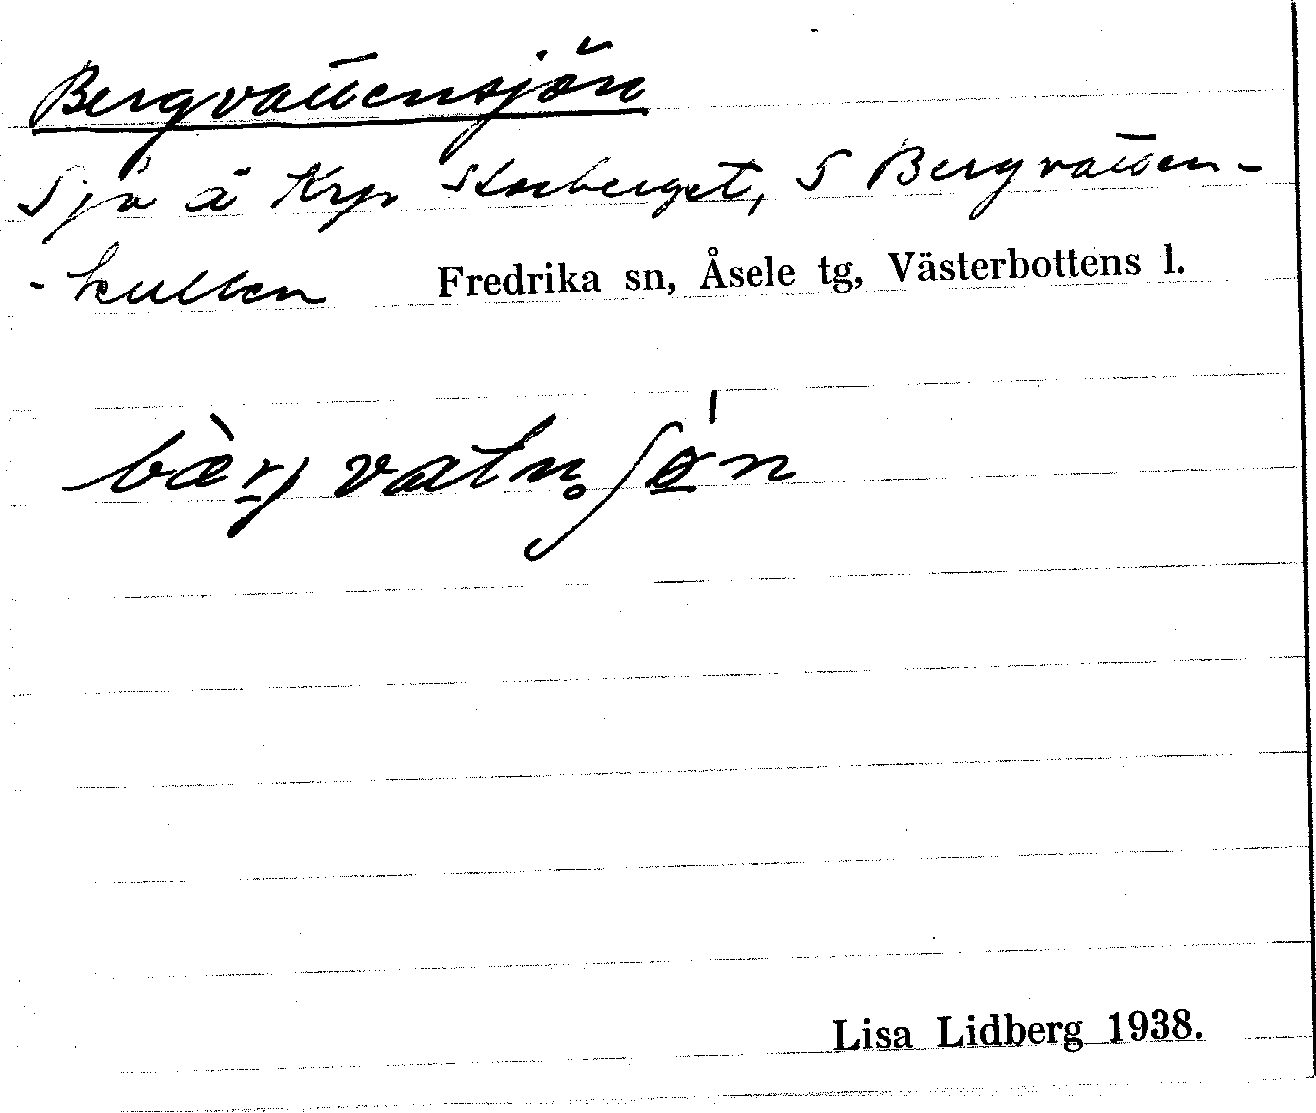 Bergvattensjön
Sjö å Krp Storberget, S Bergvatten-
-kullen Fredrika sn, Åsele tg, Västerbottens l.
Lisa Lidberg 1938.